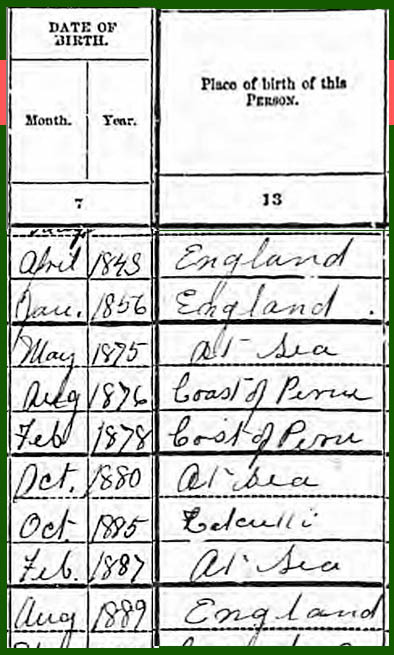 DATE OF
BIRTH.
Place of birth of this
PERSON.
Month. Year.
7 13
April 1843 England
Jan. 1856 England .
May 1875 At Sea
Aug 1876 Coast of Peru
Feb 1878 Cost of Peru
Oct. 1880 At Sea
Oct. 1885
Feb. 1887 At Sea
Aug 1889 England